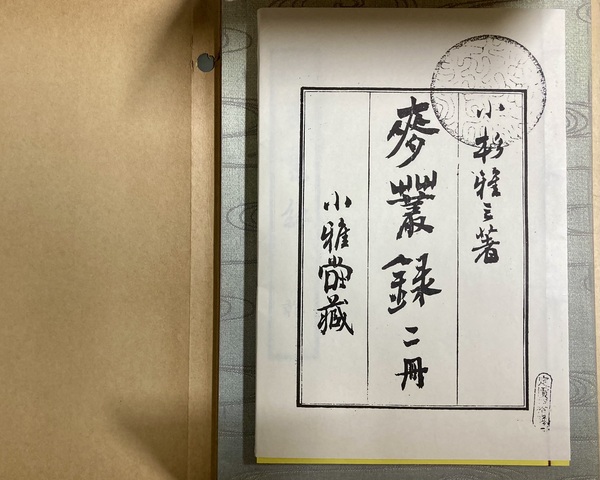 小杉雅三著
麥叢録 二冊
小雅堂藏